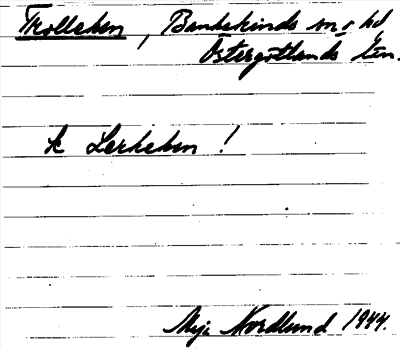 Trolleken, Bankekinds sn o hd
Östergötlands län.
se Lerkeken!
Nordlund 1944.